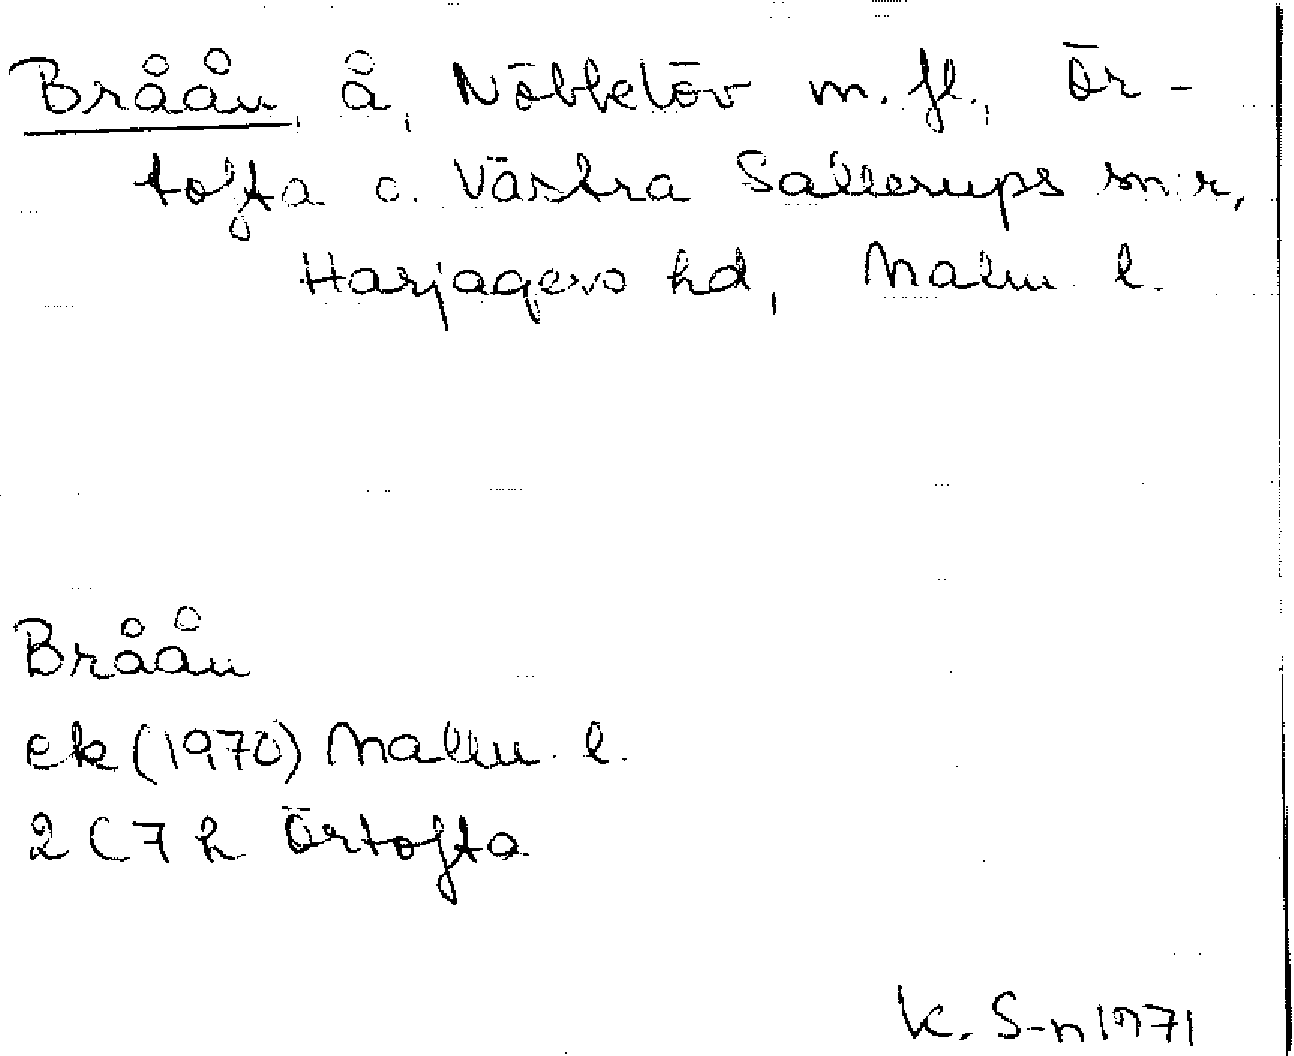 Bråån, å, Nöbbelöv m. fl., Ör-
tofta o. Västra Sallerups sn:r,
Harjagers hd, Malm. l.
Bråån
ek (1970) Malm. l.
2 C 7 h Örtofta
K. S-n 1971